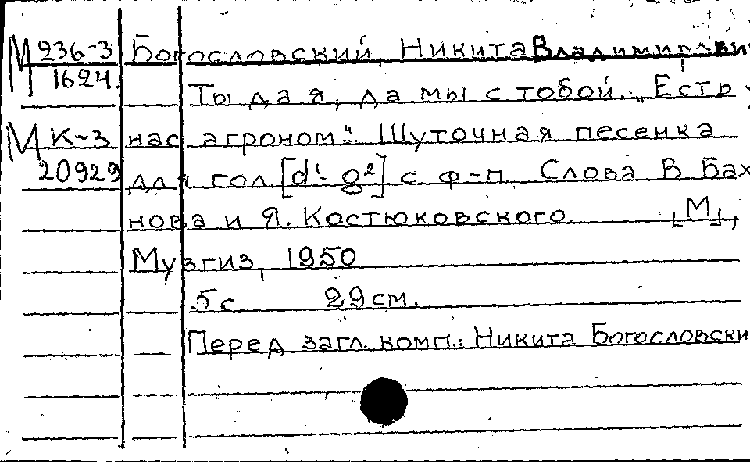 М 936-3 Богословский, Никита Владимирови
1624. Ты да я, да мы с тобой... Есть у
М К-3 нас агроном": Шуточная песенка
20929 для гол. [d¹-g²] с ф-п. Слова В Бах
нова и Я. Костюковского [М],
Музгиз, 1950
5с 29 см.
Перед загл. комп.: Никита Богословски